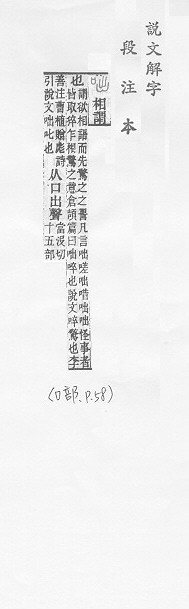 說文解字
段注本
咄 相謂
也 謂欲相語而先驚之之䛐凡言咄嗟咄唶咄咄怪事者
皆取猝乍相驚之意倉頡篇曰咄啐也說文啐驚也李
善注曹植贈彪詩
引說文咄叱也
从口出聲
當沒切
十五部
(口部.P.58)